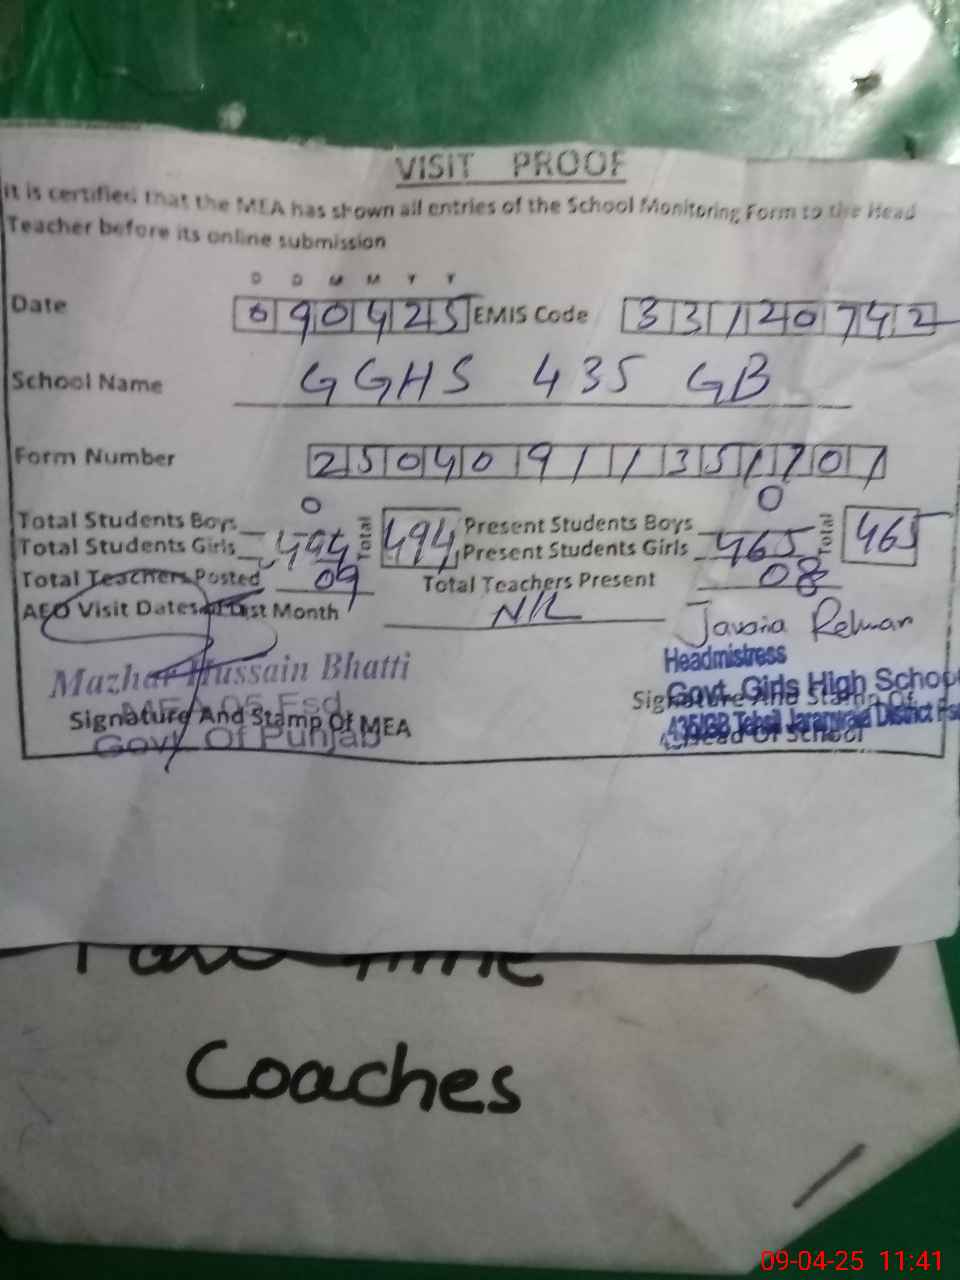 VISIT PROOF
it is certified that the MEA has shown all entries of the School Monitoring Form to the Head
Teacher before its online submission
D D M M Y Y
Date 090425 EMIS Code 33120742
School Name GGHS 435 GB
Form Number 25040911351701
Total Students Boys 0 Total 494 Present Students Boys 0 Total 465
Total Students Girls 494 Present Students Girls 465
Total Teachers Posted 09 Total Teachers Present 08
AEO Visit Dates of Last Month NR
Javaria Rehman
Mazhar Hussain Bhatti
Headmistress
Govt. Girls High School
Signature And Stamp Of
435/GB Tehsil Jaranwala District Fsd
Signature And Stamp Of MEA
Head Of School
Govt Of Punjab
Part Time
Coaches
09-04-25 11:41